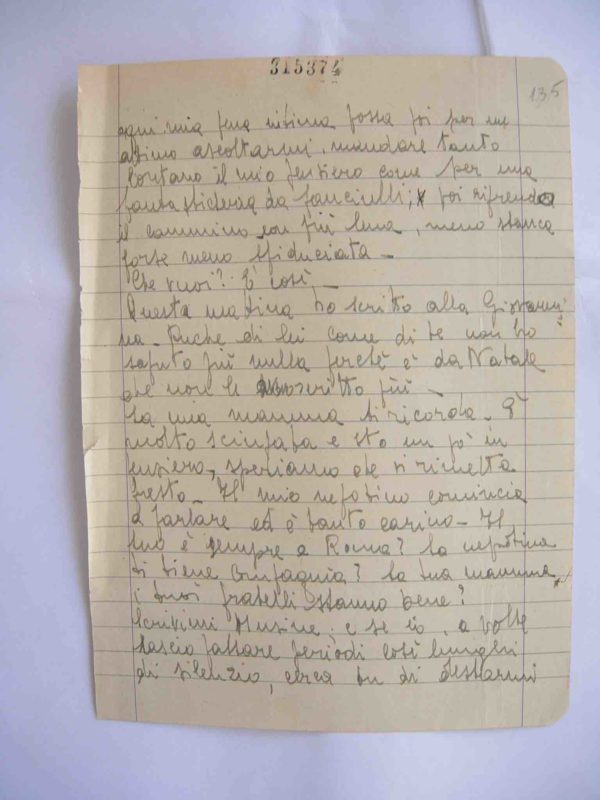 315374
135
ogni mia pena intima possa poi per un
attimo ascoltarmi, mandare tanto
lontano il mio pensiero come per una
fantasticheria da fanciulli; poi riprendo
il cammino con più lena, meno stanca
forse meno sfiduciata -
Che vuoi? È così.
Questa mattina ho scritto alla Giovanni
na. Anche di lei come di te non ho
saputo più nulla perché è da Natale
che non le ho scritto più -
La mia mamma ti ricorda. È
molto sciupata e sto un po' in
pensiero, speriamo che si rimetta
presto - Il mio nipotino comincia
a parlare ed è tanto carino - Il
tuo è sempre a Roma? La nepotina
ti tiene compagnia? La tua mamma,
i tuoi fratelli stanno bene?
Scrivimi e se io, a volte
lascio passare periodi così lunghi
di silenzio, cerca tu di destarmi